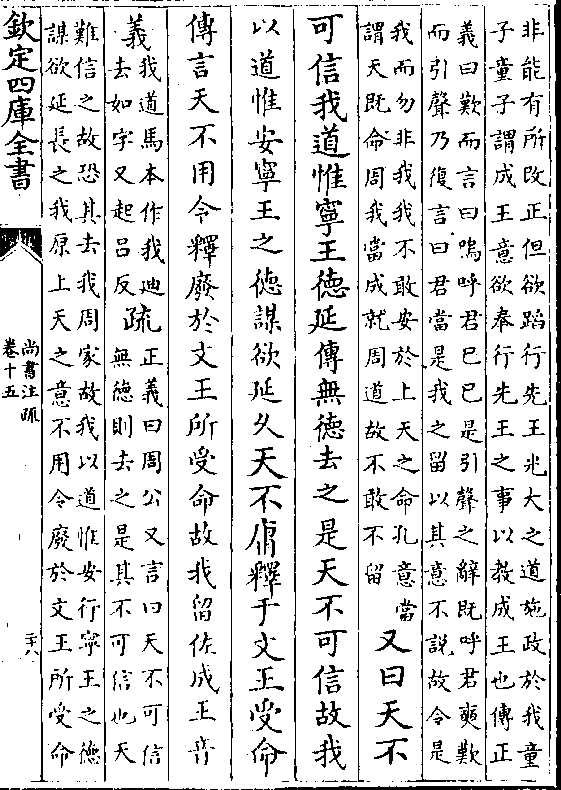 非能有所改正但欲蹈行先王光大之道施政於我童
子童子謂成王意欲奉行先王之事以教成王也傳正
義曰歎而言曰嗚呼君已已是引聲之辭既呼君奭歎
而引聲乃復言曰君當是我之留以其意不說故令是
我而勿非我我不敢安於上天之命孔意當
謂天既命周我當成就周道故不敢不留
又曰天不
可信我道惟寧王德延傳無德去之是天不可信故我
以道惟安寧王之德謀欲延久天不庸釋于文王受命
傳言天不用令釋廢於文王所受命故我留佐成王音
義我道馬本作我迪
去如字又起呂反
疏正義曰周公又言曰天不可信
無德則去之是其不可信也天
難信之故恐其去我周家故我以道惟安行寧王之德
謀欲延長之我原上天之意不用令廢於文王所受命
欽定四庫全書
尚書注疏
卷十五
二十八